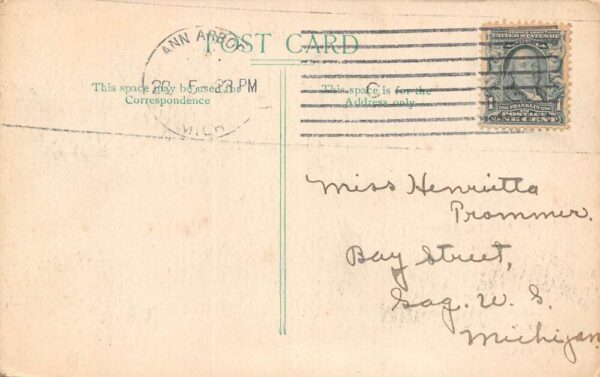 ANN ARBOR
MICH
5 PM
POST CARD
This space may be used for
Correspondence
This space is for the
Address only
C
FRANKLIN
POSTAGE
ONE CENT
Miss Henrietta
Prommer.
Bay Street,
Sag. W. S.
Michigan